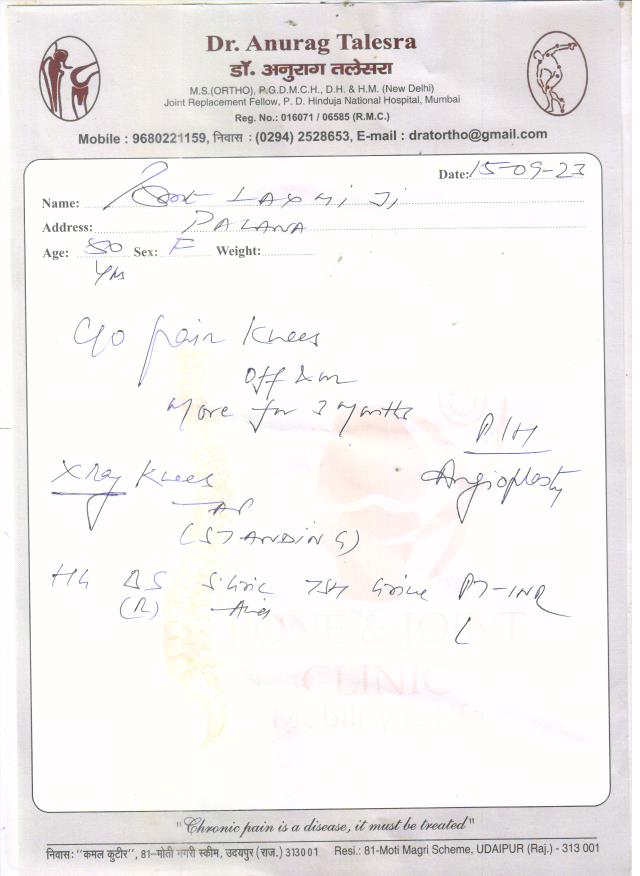 Dr. Anurag Talesra
डॉ. अनुराग तलेसरा
M.S.(ORTHO), P.G.D.M.C.H., D.H. & H.M. (New Delhi)
Joint Replacement Fellow, P. D. Hinduja National Hospital, Mumbai
Reg. No.: 016071 / 06585 (R.M.C.)
Mobile : 9680221159, निवास : (0294) 2528653, E-mail : dratortho@gmail.com
Date: 15-09-23
Name: LAXMI Ji
Address: PALANA
Age: 80 Sex: F Weight:
Yrs
C/o pain Knees
Off & on
More for 3 Months
P/H
Angioplasty
Xray Knees
AP
(STANDING)
Hb BS S. Uric TSH Urine PT-INR
(R) Acid
BONE & JOINT
CLINIC
"Chronic pain is a disease, it must be treated"
निवास: "कमल कुटीर", 81-मोती मगरी स्कीम, उदयपुर (राज.) 313001 Resi.: 81-Moti Magri Scheme, UDAIPUR (Raj.) - 313 001